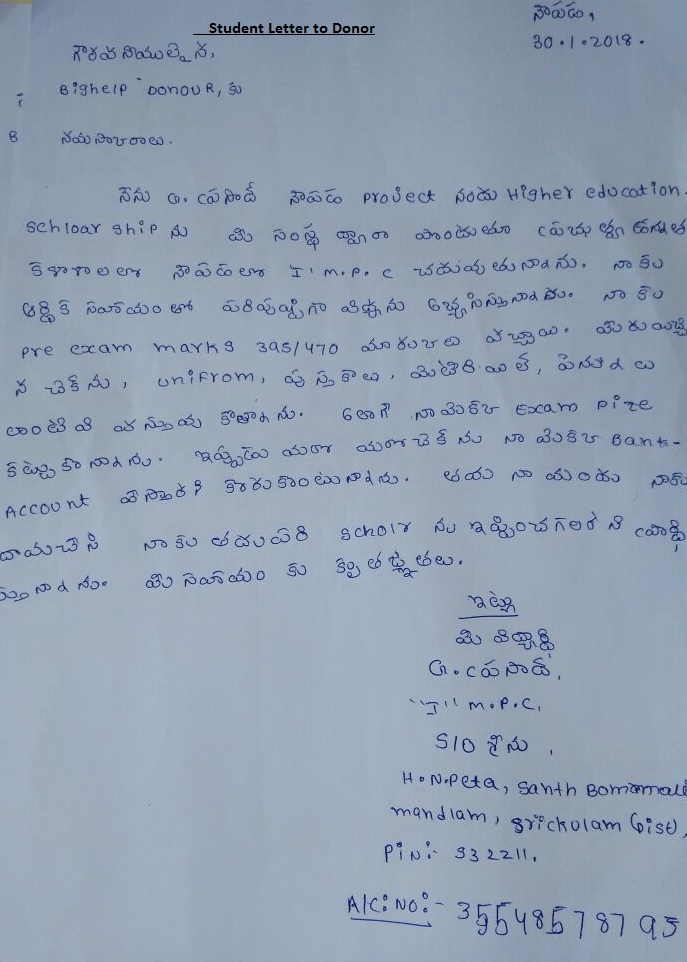 Student Letter to Donor
నౌపడ,
30.1.2018.
గౌరవనీయులైన,
Bighelp DONOUR, కు
నమస్కారాలు.
నేను G. ప్రసాద్ నౌపడ Project నందు Higher education
schloar ship ను మీ సంస్థ ద్వారా పొందుతూ ప్రభుత్వ జూనియర్
కళాశాలలో నౌపడలో I' M.P.C చదువుతున్నాను. నాకు
ఆర్థిక సహాయంతో పరిపుష్టిగా విద్యను అభ్యసిస్తున్నాను. నాకు
pre exam marks 395/470 మార్కులు వచ్చాయి. మీరు యిచ్చి
న చెక్ ను, unifrom, పుస్తకాలు, మెటీరియల్, పెన్నులు
లాంటివి వస్తువు కొన్నాను. అలాగే నా యొక్క Exam Pize
కట్టుకొన్నాను. ఇప్పుడు మరలా చెక్ ను నా యొక్క Bank-
Account వేస్తారని కోరుకొంటున్నాను. దయ నా యందు నాకు
దయచేసి నాకు తదుపరి Scholr ను ఇప్పించగలరని ప్రార్థి
స్తున్నాను. మీ సహాయం కు కృతజ్ఞతలు.
ఇట్లు
మీ విద్యార్థి
G. ప్రసాద్,
"I" M.P.C,
S/O శ్రీను,
H.N.Peta, Santh Bommali
mandlam, Srickolam (Dist),
PiN:- 532211.
A/C: NO:- 35548578795